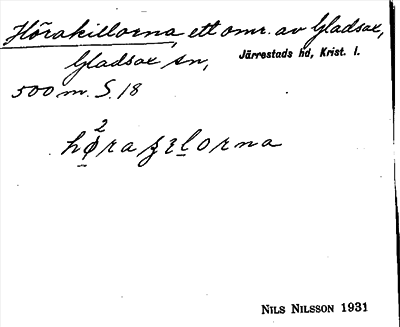 Hörakillorna, ett omr. av Gladsax,
Gladsax sn, Järrestads hd, Krist. l.
500 m. S. 18
NILS NILSSON 1931